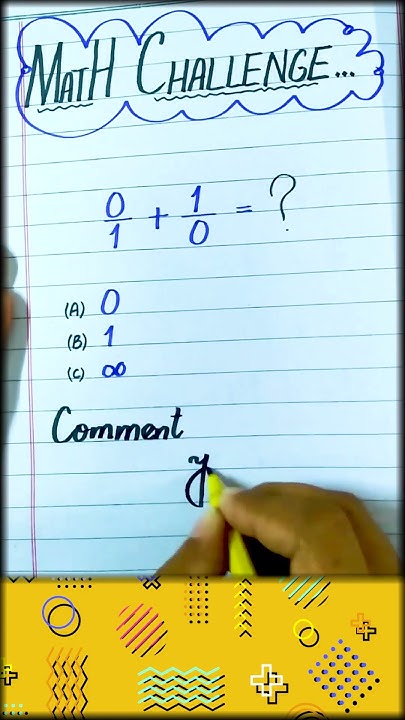 MATH CHALLENGE...
0/1 + 1/0 = ?
(A) 0
(B) 1
(C) ∞
Comment
y